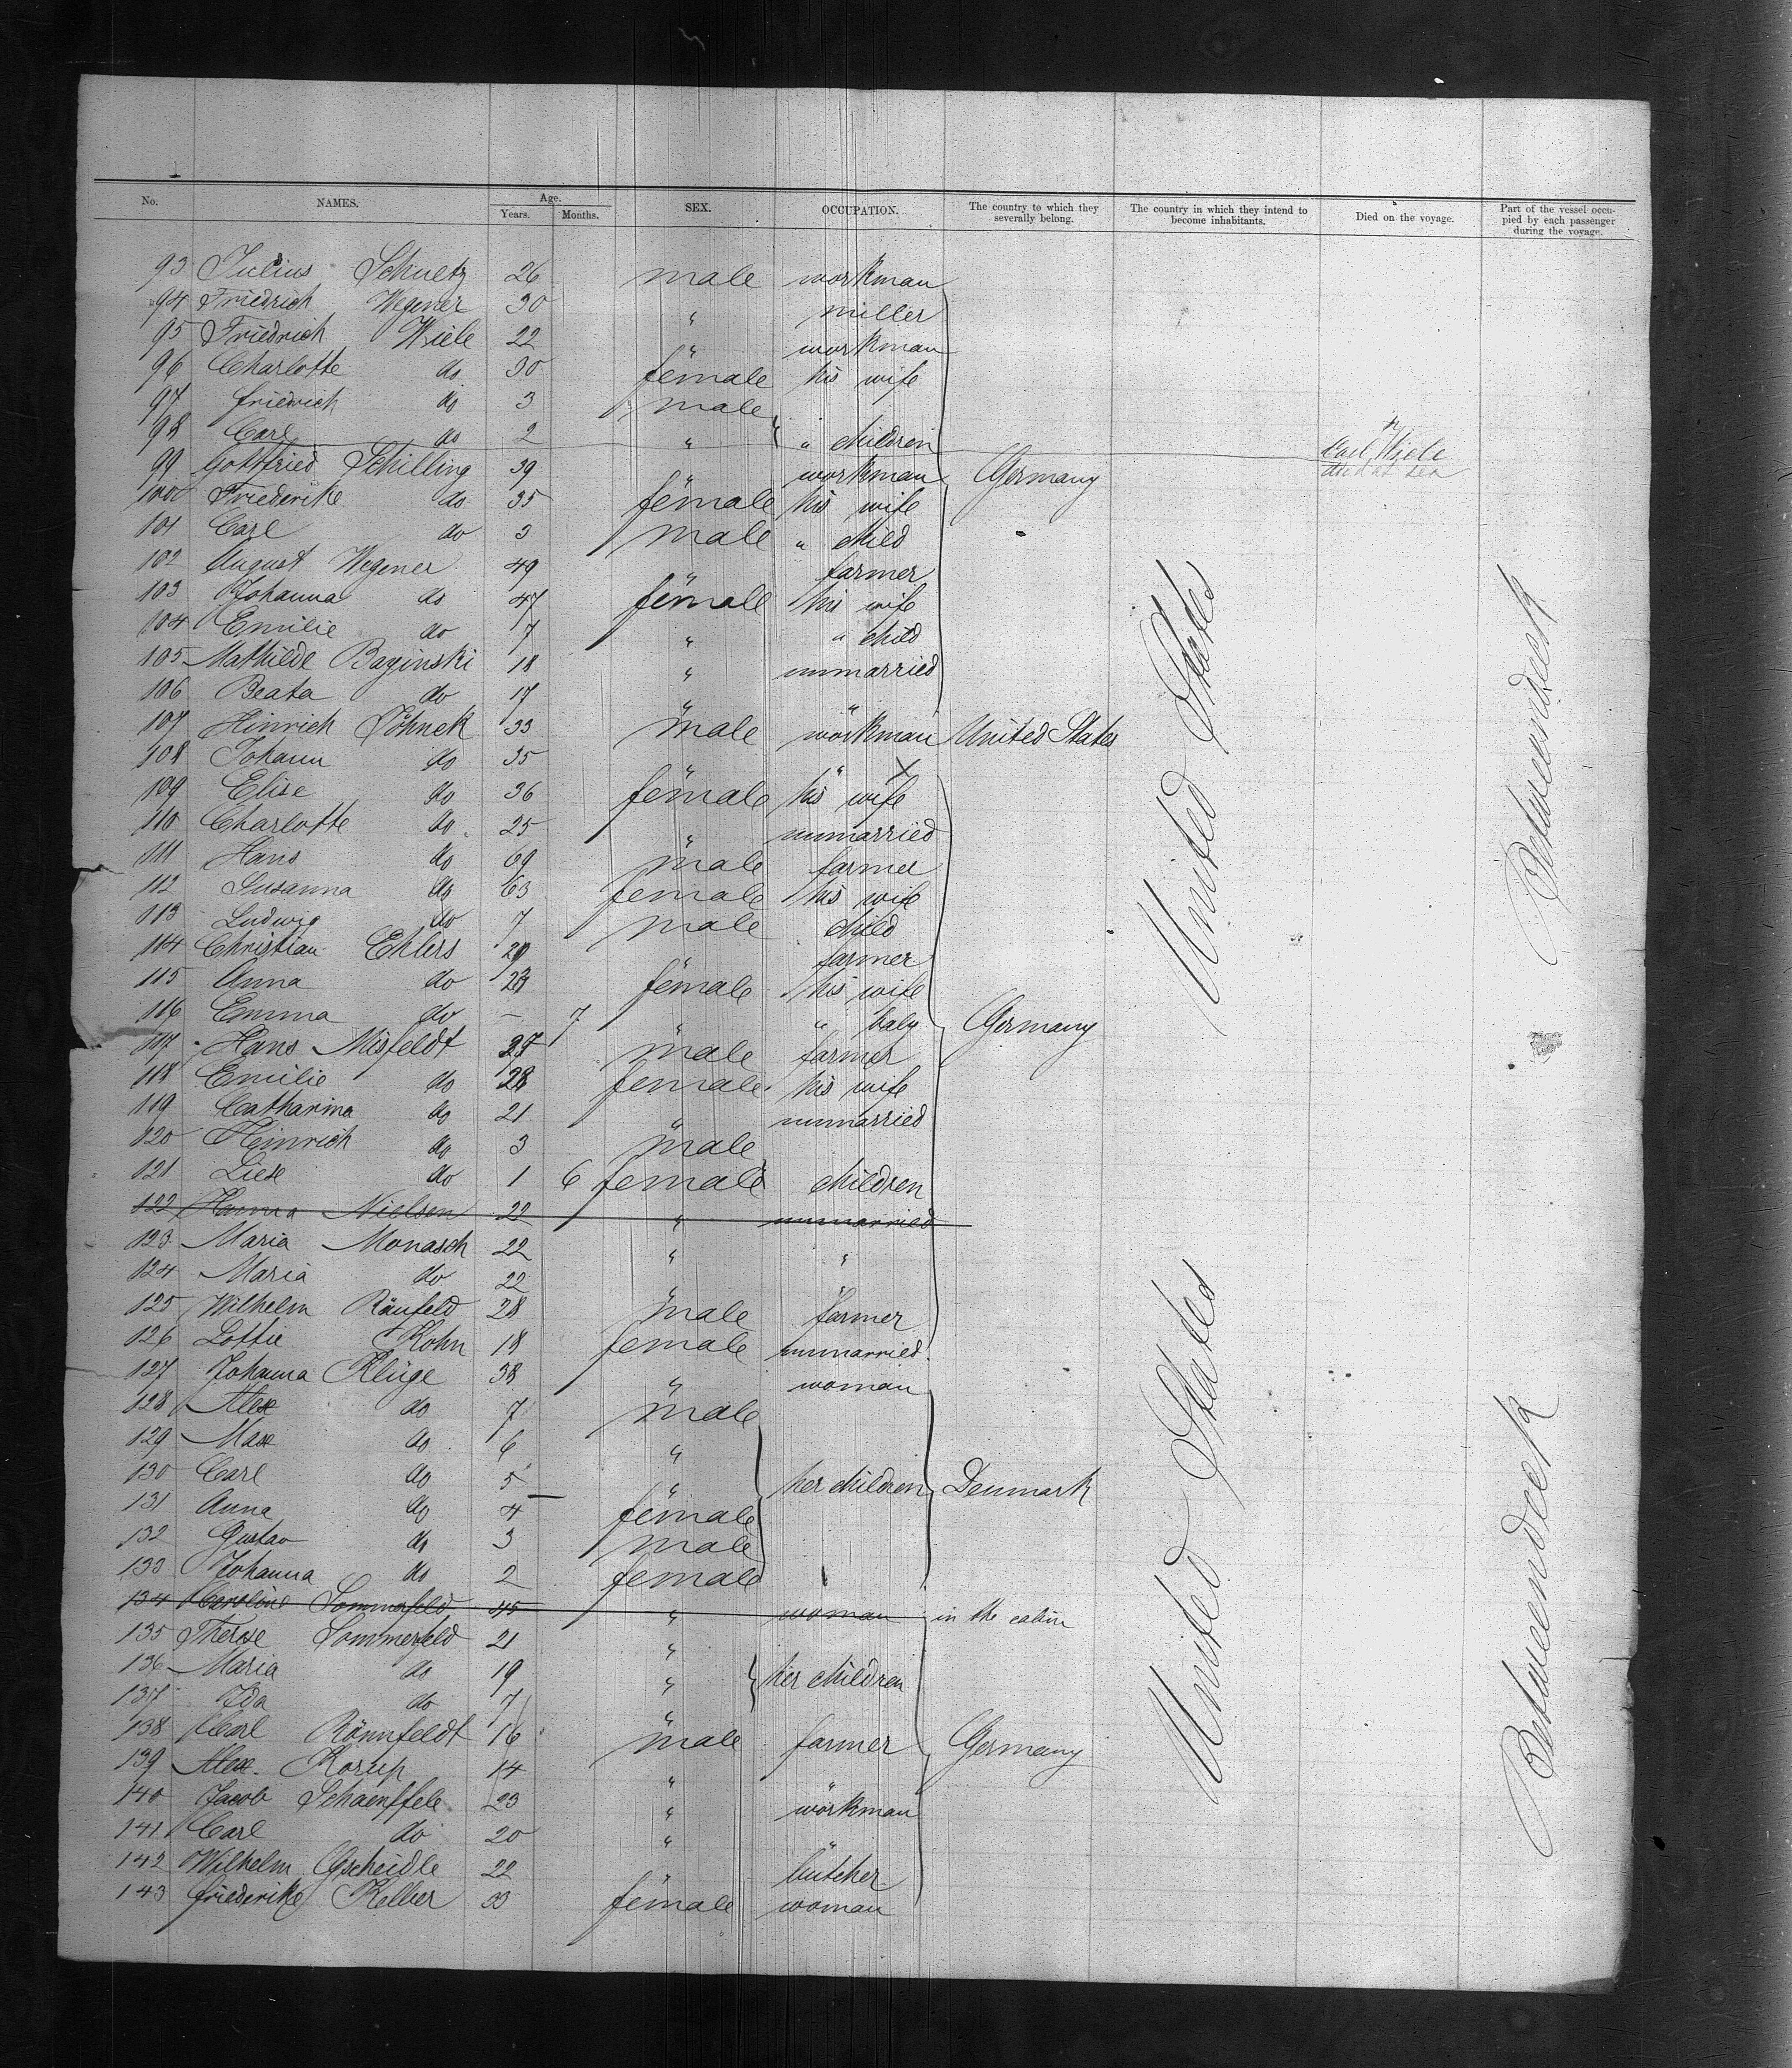 No. NAMES. Age. Years. Months. SEX. OCCUPATION. The country to which they severally belong. The country in which they intend to become inhabitants. Died on the voyage. Part of the vessel occupied by each passenger during the voyage.
93 Julius Schuetz 26 male workman
94 Friedrich Wegener 30 " miller
95 Friedrich Wiele 22 " workman
96 Charlotte do 30 female his wife
97 Friedrich do 3 male
98 Carl do 2 " " children Carl Wiele died at sea
99 Gottfried Schilling 39 " workman Germany
100 Friederike do 35 female his wife
101 Carl do 3 male " child
102 August Wegener 49 " farmer
103 Johanna do 47 female his wife
104 Emilie do 7 " " child
105 Mathilde Baginski 18 " unmarried
106 Beata do 17 " "
107 Hinrich Söhnek 33 male workman United States
108 Johann do 35 " "
109 Elise do 36 female his wife
110 Charlotte do 25 " unmarried
111 Hans do 69 male farmer
112 Susanna do 63 female his wife
113 Ludwig do 7 male child
114 Christian Ehlers 29 " farmer
115 Anna do 23 female his wife
116 Emma do – 7 " " baby Germany
117 Hans Misfeldt 27 male farmer
118 Emilie do 28 female his wife
119 Catharina do 21 " unmarried
120 Heinrich do 3 male
121 Liese do 1 6 female children
122 Hanna Nielsen 22 " unmarried
123 Maria Monasch 22 " "
124 Maria do 22 " "
125 Wilhelm Räufeld 28 male farmer
126 Lottie Kohn 18 female unmarried
127 Johanna Kluge 38 " woman
128 Alex do 7 male
129 Max do 6 "
130 Carl do 5 " her children Denmark
131 Anna do 4 female
132 Gustav do 3 male
133 Johanna do 2 female
134 Caroline Sommerfeld 45 " woman in the cabin
135 Therese Sommerfeld 21 "
136 Maria do 19 " her children
137 Ida do 7 "
138 Carl Rönnfeldt 16 male farmer Germany
139 Alex. Korup 14 " "
140 Jacob Schaenffele 23 " workman
141 Carl do 20 " "
142 Wilhelm Gscheidle 22 " butcher
143 Friederike Kelber 33 female woman
United States
United States
Betweendeck
Betweendeck